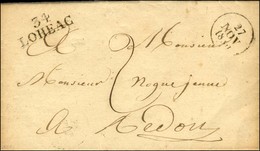 34
LOHEAC
27
NOV
A Monsieur
Monsieur Nogue jeune
2
A Redon